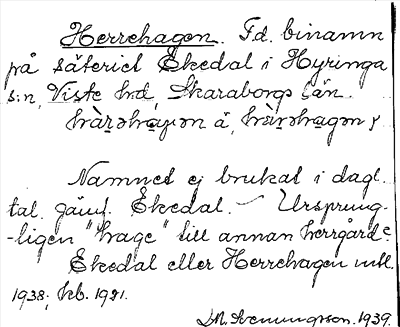 Herrehagen. Fd. binamn
på säteriet Ekedal i Hyringa
s:n, Viste hd, Skaraborgs län.
Namnet ej brukat i dagl.
tal. jämf. Ekedal. – Ursprung-
-ligen "hage" till annan herrgård?
Ekedal eller Herrehagen
1938; 1921.
1939.